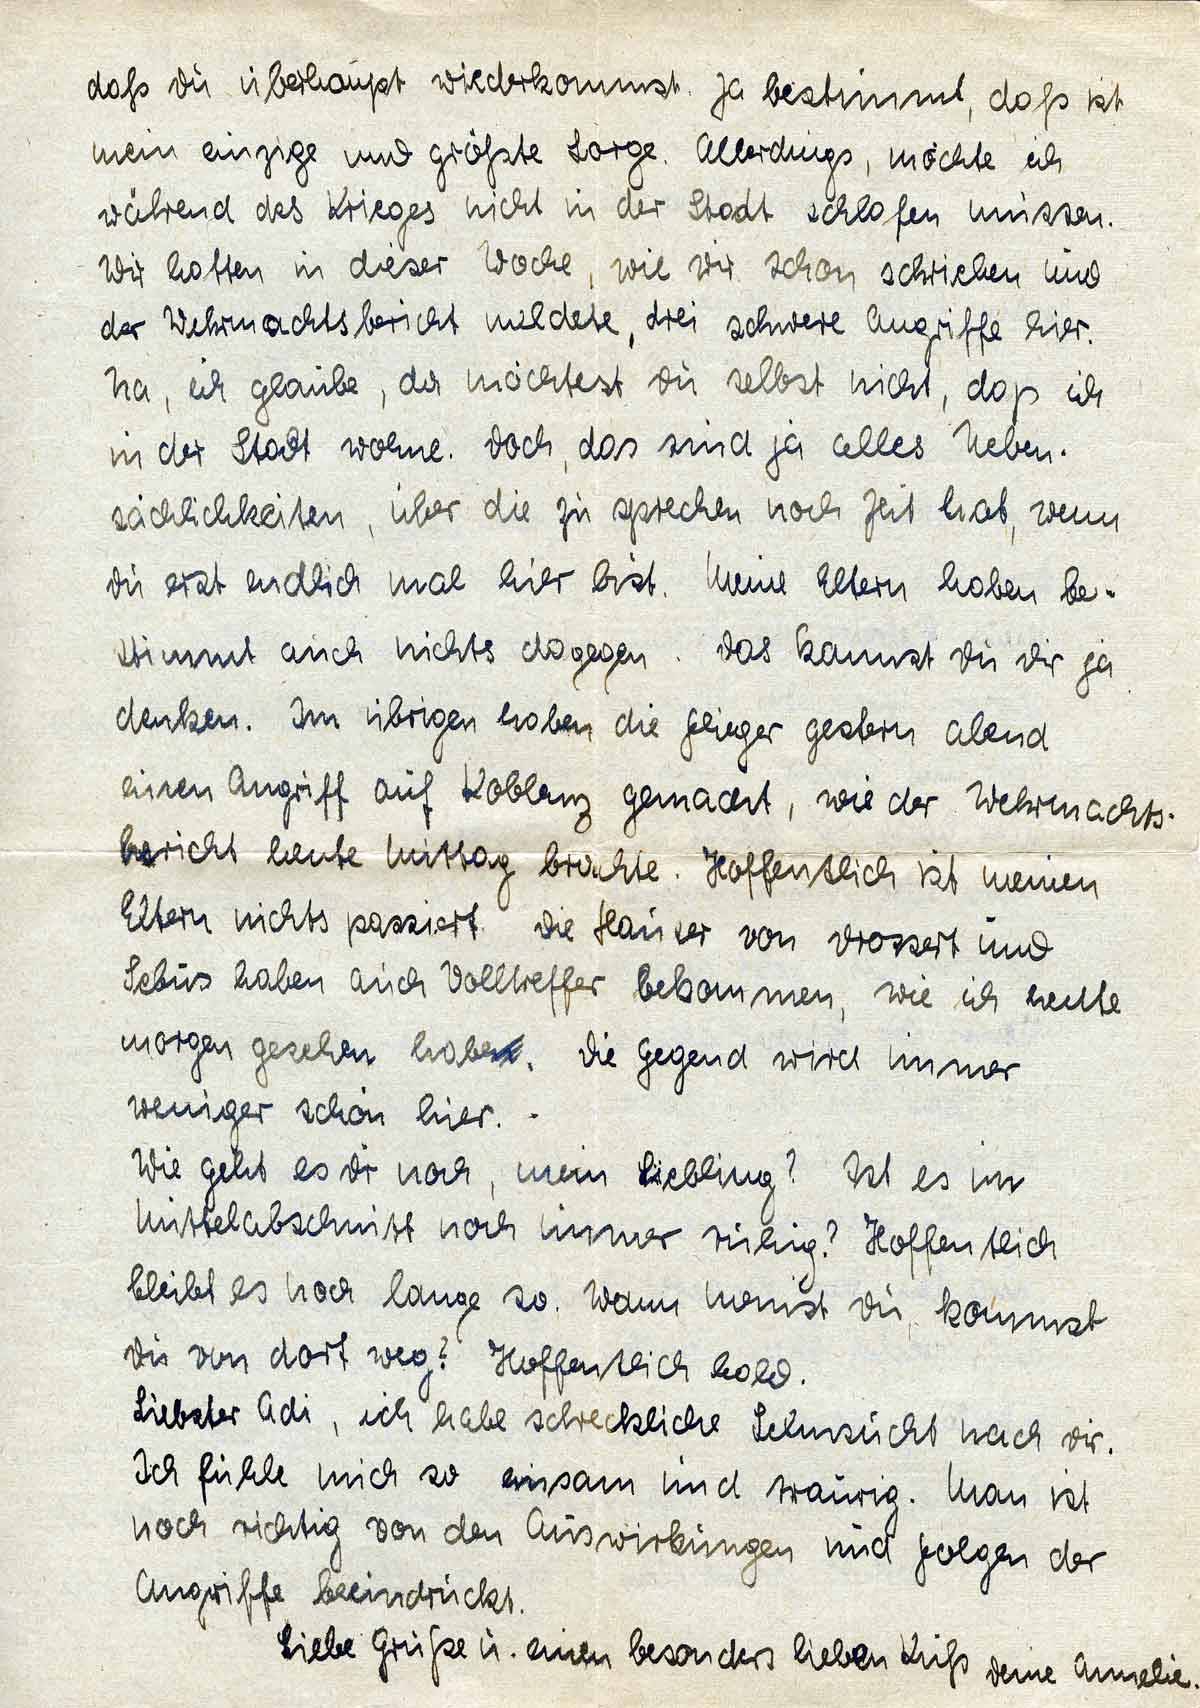 daß du überhaupt wiederkommst. Ja bestimmt, daß ist
mein einzige und größte Sorge. Allerdings, möchte ich
während des Krieges nicht in der Stadt schlafen müssen.
Wir hatten in dieser Woche, wie wir schon schrieben und
der Wehrmachtsbericht meldete, drei schwere Angriffe hier.
Na, ich glaube, da möchtest du selbst nicht, daß ich
in der Stadt wohne. Doch, das sind ja alles Neben-
sächlichkeiten, über die zu sprechen noch Zeit hat, wenn
du erst endlich mal hier bist. Meine Eltern haben be-
stimmt auch nichts dagegen. Das kannst du dir ja
denken. Im übrigen haben die Flieger gestern abend
einen Angriff auf Koblenz gemacht, wie der Wehrmachts-
bericht heute Mittag brachte. Hoffentlich ist meinen
Eltern nichts passiert. Die Häuser von Drossert und
haben auch Volltreffer bekommen, wie ich heute
morgen gesehen habe. Die Gegend wird immer
weniger schön hier. -
Wie geht es dir noch, mein Liebling? Ist es im
Mittelabschnitt noch immer ruhig? Hoffentlich
bleibt es noch lange so. Wann meinst du, kommst
du von dort weg? Hoffentlich bald.
Liebster Adi, ich habe schreckliche Sehnsucht nach dir.
Ich fühle mich so einsam und traurig. Man ist
noch richtig von den Auswirkungen und Folgen der
Angriffe beeindruckt.
Liebe Grüße u. einen besonders lieben Kuß deine Annelie.